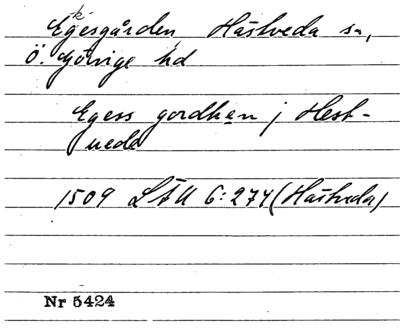 Ekesgården Hästveda sn,
Ö. Göinge hd
Egess gordhen j Hest-
ueda
1509 LÄU 6:274 (Hästveda)
Nr 5424